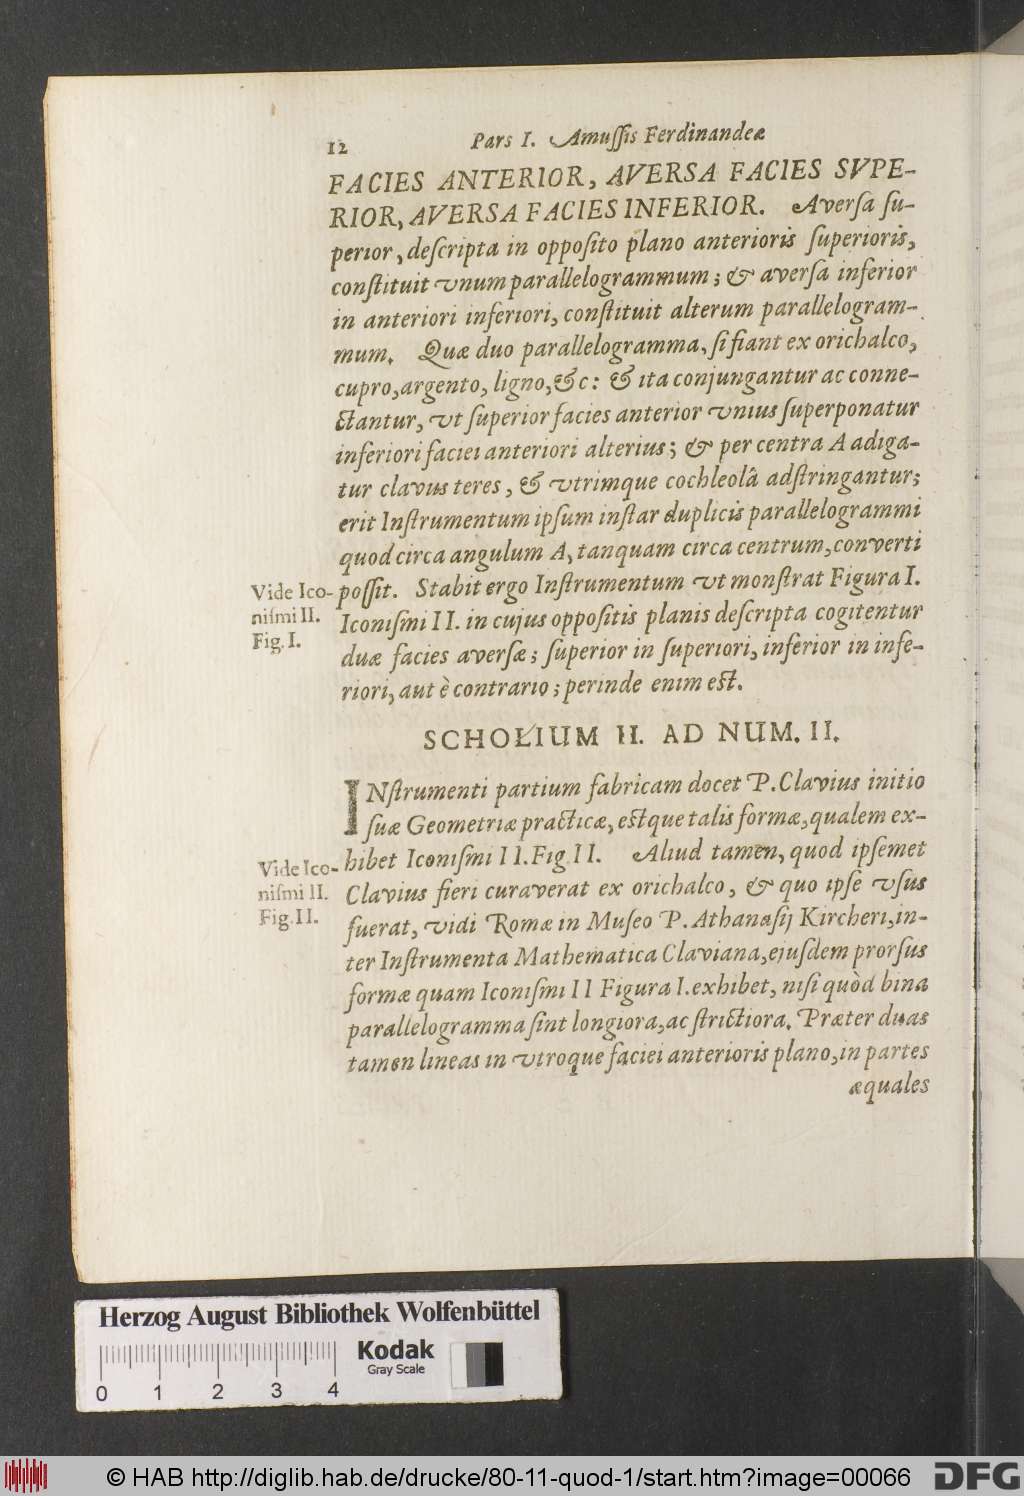 12 Pars I. Amuſſis Ferdinandeæ
FACIES ANTERIOR, AVERSA FACIES SVPE-
RIOR, AVERSA FACIES INFERIOR. Averſa ſu-
perior, deſcripta in oppoſito plano anterioris ſuperioris,
conſtituit vnum parallelogrammum; & averſa inferior
in anteriori inferiori, conſtituit alterum parallelogram-
mum. Quæ duo parallelogramma, ſi fiant ex orichalco,
cupro, argento, ligno, &c: & ita conjungantur ac conne-
ctantur, vt ſuperior facies anterior vnius ſuperponatur
inferiori faciei anteriori alterius; & per centra A adiga-
tur clavus teres, & vtrimque cochleolâ adſtringantur;
erit Inſtrumentum ipſum inſtar duplicis parallelogrammi
quod circa angulum A, tanquam circa centrum, converti
poſſit. Stabit ergo Inſtrumentum vt monſtrat Figura I.
Iconiſmi II. in cujus oppoſitis planis deſcripta cogitentur
duæ facies averſæ; ſuperior in ſuperiori, inferior in infe-
riori, aut è contrario; perinde enim eſt.
Vide Ico-
niſmi II.
Fig. I.
SCHOLIUM II. AD NUM. II.
INſtrumenti partium fabricam docet P. Clavius initio
ſuæ Geometriæ practicæ, eſtque talis formæ, qualem ex-
hibet Iconiſmi II. Fig. II. Aliud tamen, quod ipſemet
Clavius fieri curaverat ex orichalco, & quo ipſe vſus
fuerat, vidi Romæ in Muſeo P. Athanaſij Kircheri, in-
ter Inſtrumenta Mathematica Claviana, ejuſdem prorſus
formæ quam Iconiſmi II Figura I. exhibet, niſi quòd bina
parallelogramma ſint longiora, ac ſtrictiora. Præter duas
tamen lineas in vtroque faciei anterioris plano, in partes
æquales
Vide Ico-
niſmi II.
Fig. II.
Herzog August Bibliothek Wolfenbüttel
Kodak
Gray Scale
0 1 2 3 4
© HAB http://diglib.hab.de/drucke/80-11-quod-1/start.htm?image=00066
DFG